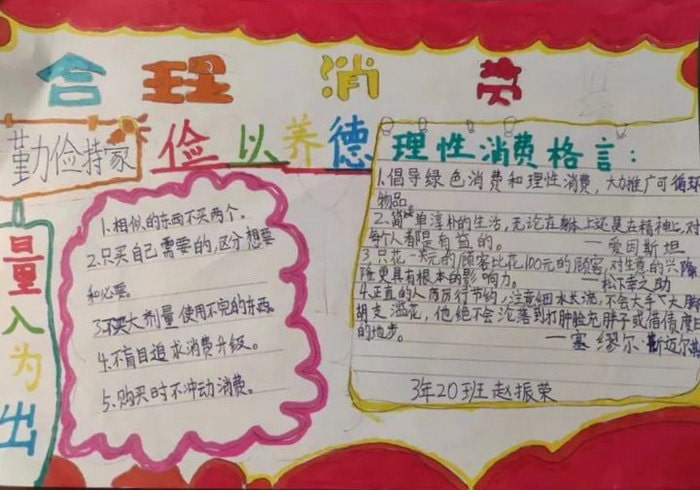 合理消费
勤俭持家
俭以养德
量入为出
1.相似的东西不买两个。
2.只买自己需要的,区分想要
和必要。
3.不买大剂量使用不完的东西。
4.不盲目追求消费升级。
5.购买时不冲动消费。
理性消费格言:
1.倡导绿色消费和理性消费,大力推广可循环
物品。
2.简单淳朴的生活,无论在身体上还是在精神上,对
每个人都是有益的。——爱因斯坦
3.只花一元的顾客比花100元的顾客,对生意的兴隆
隆更具有根本的影响力。——松下幸之助
4.正直的人厉厉行节约,注意细水长流,不会大手大脚
胡支滥花,他绝不会沦落到打肿脸充胖子或借债度日
的地步。——塞缪尔·斯迈尔斯
3年20班赵振荣